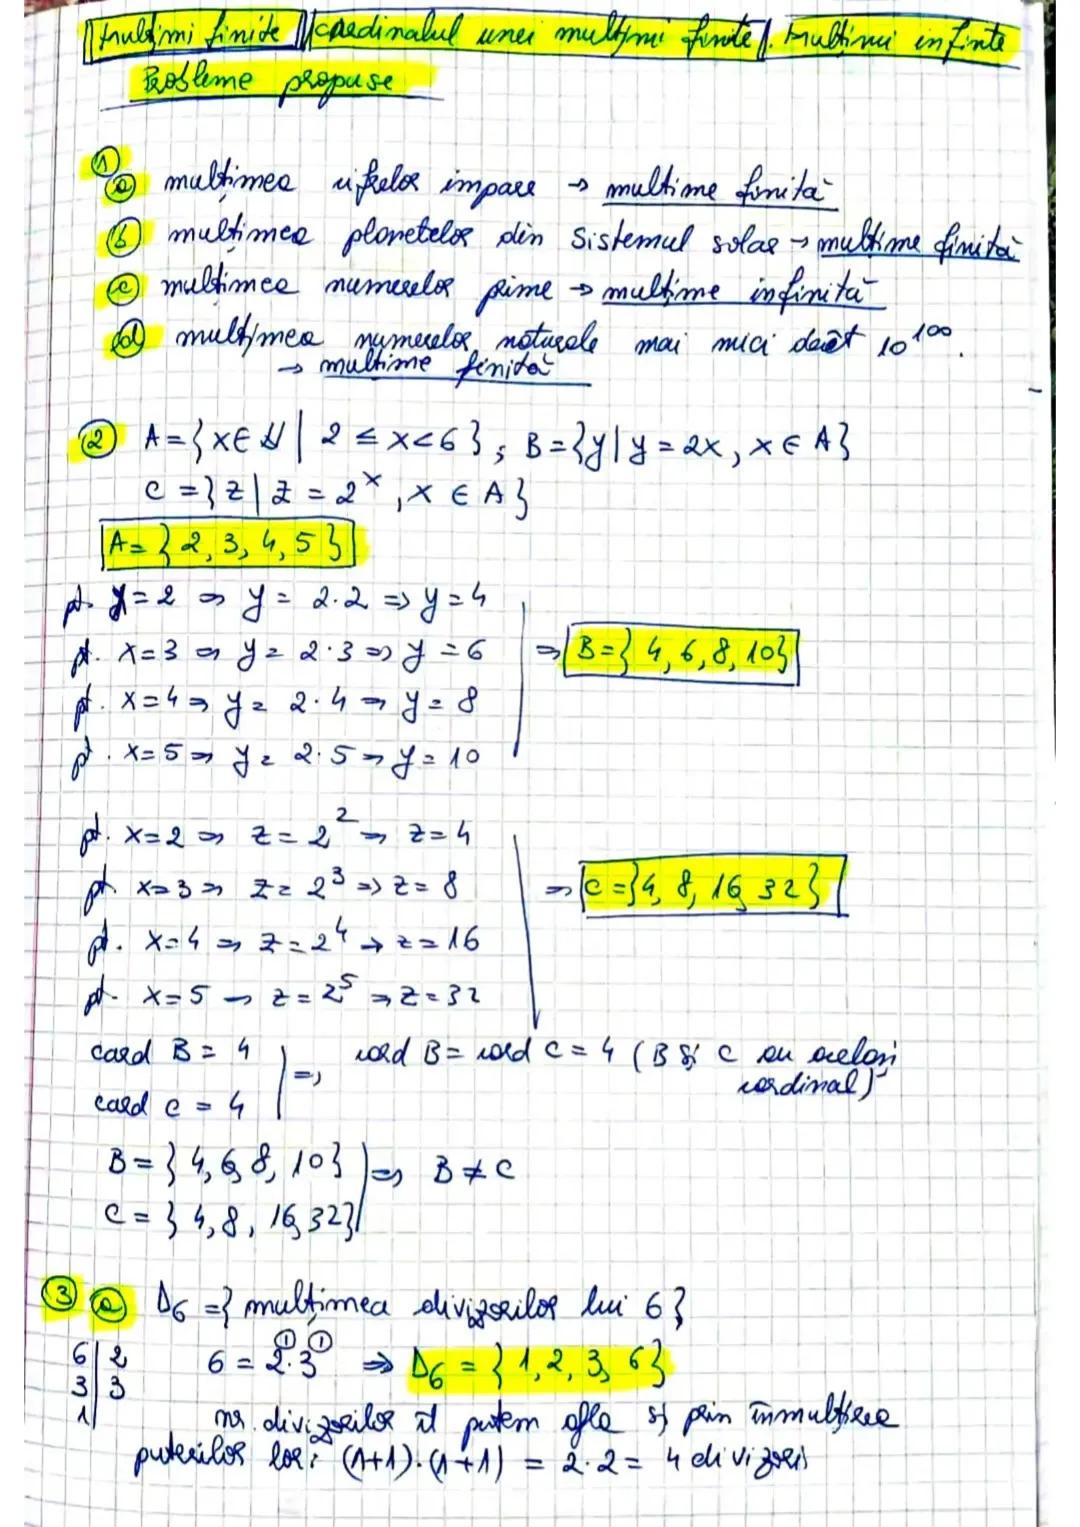 Mulțimi finite. cardinalul unei mulțimi finite. Mulțimi infinite
Probleme propuse
1
a mulțimea cifrelor impare → multime finită
b mulțimea planetelor din Sistemul solar → multime finită
c mulțimea numerelor prime → multime infinită
d mulțimea numerelor naturale mai mici decât 10¹⁰⁰.
→ multime finită
2 A = {x∈ℕ | 2 ≤ x < 6}; B = {y | y = 2x, x ∈ A}
C = {z | z = 2ˣ, x ∈ A}
A = {2, 3, 4, 5}
pt. x = 2 ⇒ y = 2·2 ⇒ y = 4
pt. x = 3 ⇒ y = 2·3 ⇒ y = 6 ⇒ B = {4, 6, 8, 10}
pt. x = 4 ⇒ y = 2·4 ⇒ y = 8
pt. x = 5 ⇒ y = 2·5 ⇒ y = 10
pt. x = 2 ⇒ z = 2² ⇒ z = 4
pt. x = 3 ⇒ z = 2³ ⇒ z = 8 ⇒ C = {4, 8, 16, 32}
pt. x = 4 ⇒ z = 2⁴ → z = 16
pt. x = 5 ⇒ z = 2⁵ ⇒ z = 32
card B = 4 ⇒ card B = card C = 4 (B și C au același
cardinal)
card C = 4
B = {4, 6, 8, 10} ⇒ B ≠ C
C = {4, 8, 16, 32}
3 a D₆ = {mulțimea divizorilor lui 6}
6 | 2 6 = 2¹·3¹ ⇒ D₆ = {1, 2, 3, 6}
3 | 3
1 |
nr. divizorilor îl putem afla și prin înmulțirea
puterilor lor: (1+1)·(1+1) = 2·2 = 4 divizori